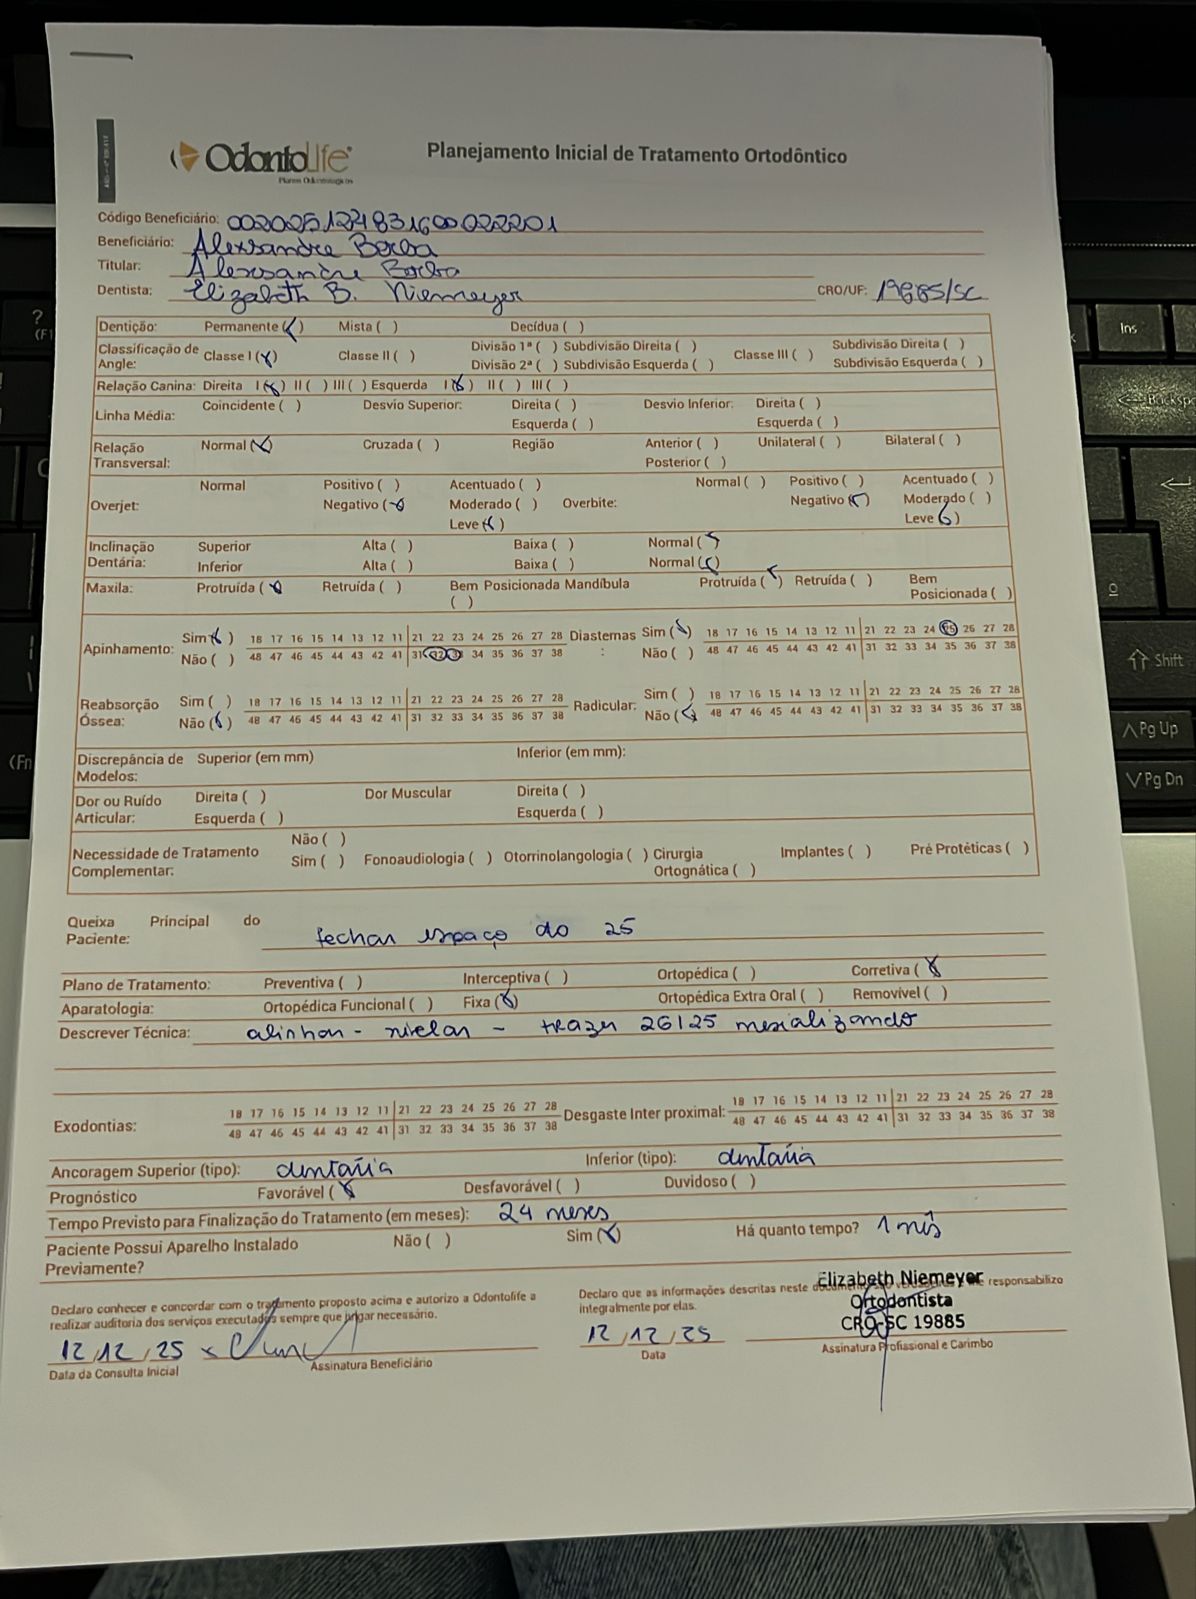 OdontoLife
Planos Odontológicos
Planejamento Inicial de Tratamento Ortodôntico
Código Beneficiário: 002025124831600022201
Beneficiário: Alexsandre Borba
Titular: Alexsandre Borba
Dentista: Elizabeth B. Niemeyer CRO/UF: 19885/SC
Dentição: Permanente (x) Mista ( ) Decídua ( )
Classificação de Angle: Classe I (x) Classe II ( ) Divisão 1ª ( ) Subdivisão Direita ( ) Classe III ( ) Subdivisão Direita ( )
Divisão 2ª ( ) Subdivisão Esquerda ( ) Subdivisão Esquerda ( )
Relação Canina: Direita I (x) II ( ) III ( ) Esquerda I (x) II ( ) III ( )
Linha Média: Coincidente ( ) Desvio Superior: Direita ( ) Desvio Inferior: Direita ( )
Esquerda ( ) Esquerda ( )
Relação Transversal: Normal (x) Cruzada ( ) Região Anterior ( ) Unilateral ( ) Bilateral ( )
Posterior ( )
Overjet: Normal Positivo ( ) Acentuado ( ) Overbite: Normal ( ) Positivo ( ) Acentuado ( )
Negativo (x) Moderado ( ) Negativo (x) Moderado ( )
Leve (x) Leve (x)
Inclinação Dentária: Superior Alta ( ) Baixa ( ) Normal (x)
Inferior Alta ( ) Baixa ( ) Normal (x)
Maxila: Protruída (x) Retruída ( ) Bem Posicionada ( ) Mandíbula Protruída (x) Retruída ( ) Bem Posicionada ( )
Apinhamento: Sim (x) 18 17 16 15 14 13 12 11 21 22 23 24 25 26 27 28 Diastemas : Sim (x) 18 17 16 15 14 13 12 11 21 22 23 24 25 26 27 28
Não ( ) 48 47 46 45 44 43 42 41 31 32 33 34 35 36 37 38 Não ( ) 48 47 46 45 44 43 42 41 31 32 33 34 35 36 37 38
Reabsorção Óssea: Sim ( ) 18 17 16 15 14 13 12 11 21 22 23 24 25 26 27 28 Radicular: Sim ( ) 18 17 16 15 14 13 12 11 21 22 23 24 25 26 27 28
Não (x) 48 47 46 45 44 43 42 41 31 32 33 34 35 36 37 38 Não (x) 48 47 46 45 44 43 42 41 31 32 33 34 35 36 37 38
Discrepância de Modelos: Superior (em mm) Inferior (em mm):
Dor ou Ruído Articular: Direita ( ) Dor Muscular Direita ( )
Esquerda ( ) Esquerda ( )
Necessidade de Tratamento Complementar: Não ( )
Sim ( ) Fonoaudiologia ( ) Otorrinolangologia ( ) Cirurgia Ortognática ( ) Implantes ( ) Pré Protéticas ( )
Queixa Principal do Paciente: fechar espaço do 25
Plano de Tratamento: Preventiva ( ) Interceptiva ( ) Ortopédica ( ) Corretiva (x)
Aparatologia: Ortopédica Funcional ( ) Fixa (x) Ortopédica Extra Oral ( ) Removível ( )
Descrever Técnica: alinhar - nivelar - trazer 26/25 mesializando
Exodontias: 18 17 16 15 14 13 12 11 21 22 23 24 25 26 27 28 Desgaste Inter proximal: 18 17 16 15 14 13 12 11 21 22 23 24 25 26 27 28
48 47 46 45 44 43 42 41 31 32 33 34 35 36 37 38 48 47 46 45 44 43 42 41 31 32 33 34 35 36 37 38
Ancoragem Superior (tipo): dentária Inferior (tipo): dentária
Prognóstico Favorável (x) Desfavorável ( ) Duvidoso ( )
Tempo Previsto para Finalização do Tratamento (em meses): 24 meses
Paciente Possui Aparelho Instalado Previamente? Não ( ) Sim (x) Há quanto tempo? 1 mês
Declaro conhecer e concordar com o tratamento proposto acima e autorizo a Odontolife a
realizar auditoria dos serviços executados sempre que julgar necessário.
Declaro que as informações descritas neste responsabilizo
integralmente por elas.
Elizabeth Niemeyer
Ortodontista
CRO-SC 19885
12/12/25 x 12/12/25
Data da Consulta Inicial Assinatura Beneficiário Data Assinatura Profissional e Carimbo
? Ins
Backsp
Shift
Pg Up
(Fn Pg Dn